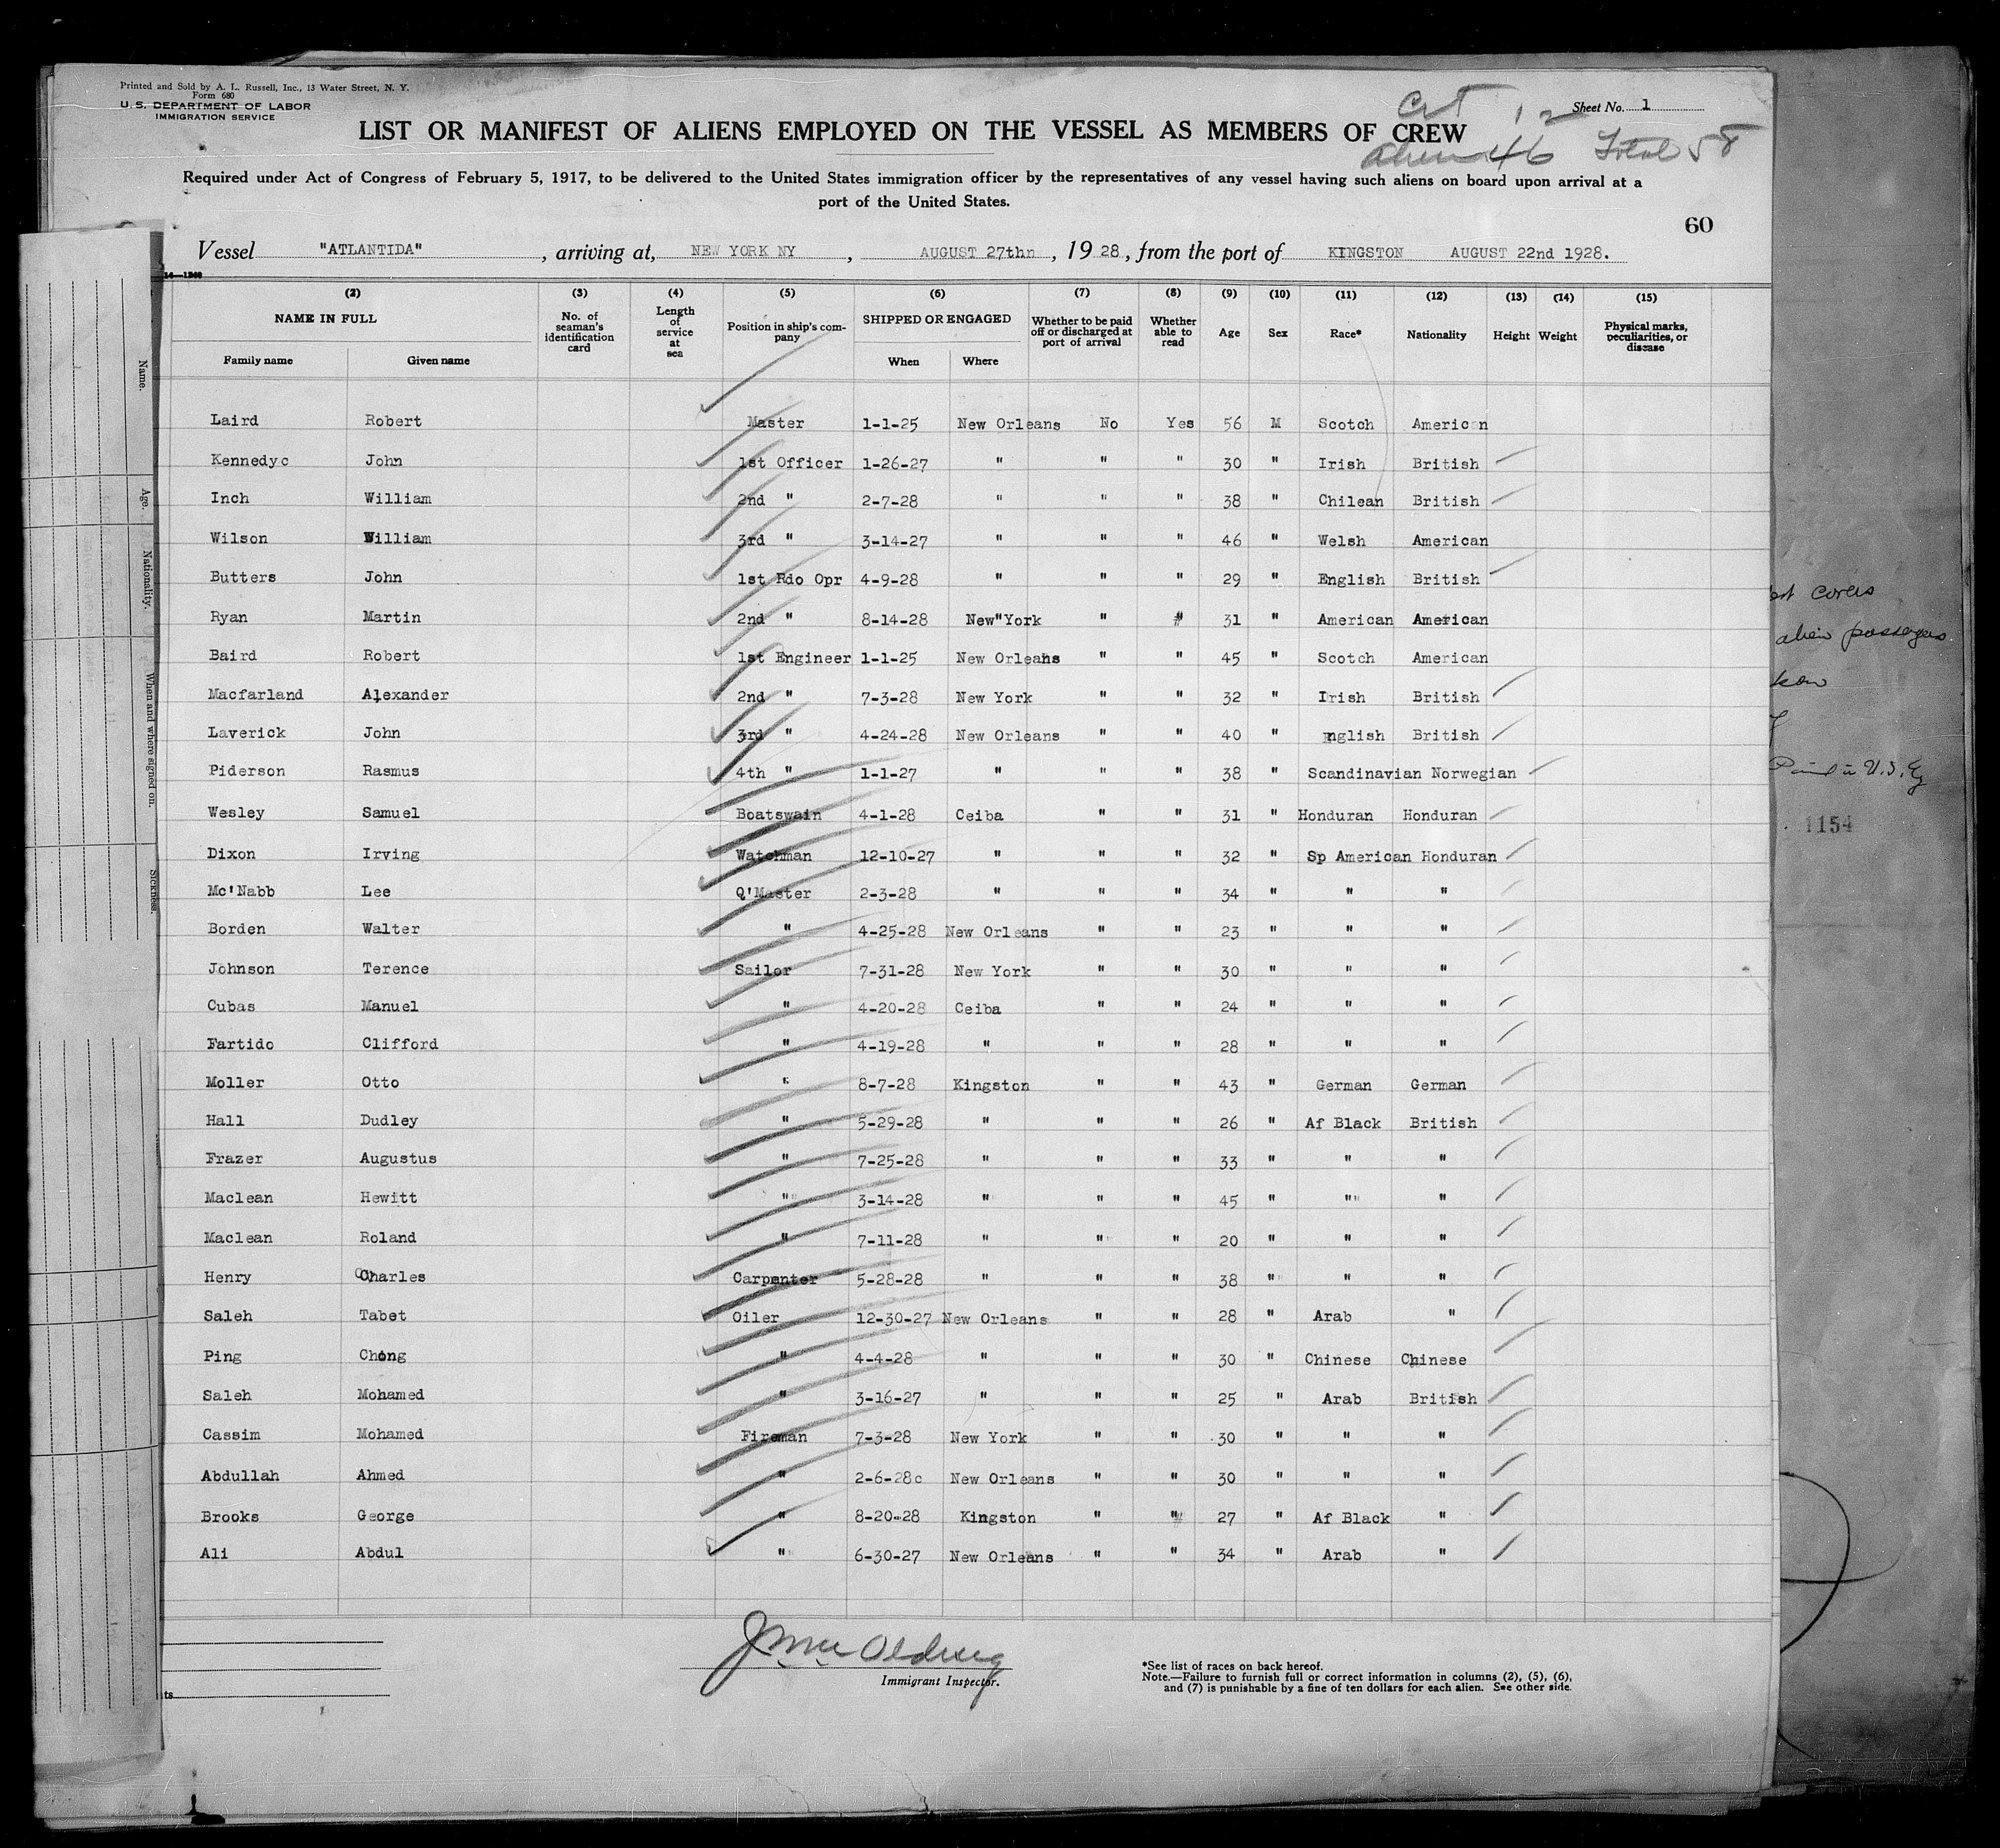 Printed and Sold by A. L. Russell, Inc., 13 Water Street, N. Y.
Form 680
U. S. DEPARTMENT OF LABOR
IMMIGRATION SERVICE
Sheet No. 1
LIST OR MANIFEST OF ALIENS EMPLOYED ON THE VESSEL AS MEMBERS OF CREW
12
Alien 46 Total 58
Required under Act of Congress of February 5, 1917, to be delivered to the United States immigration officer by the representatives of any vessel having such aliens on board upon arrival at a
port of the United States.
60
Vessel "ATLANTIDA", arriving at, NEW YORK NY, AUGUST 27thn, 1928, from the port of KINGSTON AUGUST 22nd 1928.
(2) (3) (4) (5) (6) (7) (8) (9) (10) (11) (12) (13) (14) (15)
NAME IN FULL No. of seaman's identification card Length of service at sea Position in ship's company SHIPPED OR ENGAGED Whether to be paid off or discharged at port of arrival Whether able to read Age Sex Race* Nationality Height Weight Physical marks, peculiarities, or disease
Family name Given name When Where
Laird Robert Master 1-1-25 New Orleans No Yes 56 M Scotch American
Kennedyc John 1st Officer 1-26-27 " " " 30 " Irish British
Inch William 2nd " 2-7-28 " " " 38 " Chilean British
Wilson William 3rd " 3-14-27 " " " 46 " Welsh American
Butters John 1st Rdo Opr 4-9-28 " " " 29 " English British
Ryan Martin 2nd " 8-14-28 New"York " " 31 " American American
Baird Robert 1st Engineer 1-1-25 New Orleans " " 45 " Scotch American
Macfarland Alexander 2nd " 7-3-28 New York " " 32 " Irish British
Laverick John 3rd " 4-24-28 New Orleans " " 40 " English British
Piderson Rasmus 4th " 1-1-27 " " " 38 " Scandinavian Norwegian
Wesley Samuel Boatswain 4-1-28 Ceiba " " 31 " Honduran Honduran
Dixon Irving Watchman 12-10-27 " " " 32 " Sp American Honduran
Mc'Nabb Lee Q'Master 2-3-28 " " " 34 " " "
Borden Walter " 4-25-28 New Orleans " " 23 " " "
Johnson Terence Sailor 7-31-28 New York " " 30 " " "
Cubas Manuel " 4-20-28 Ceiba " " 24 " " "
Fartido Clifford " 4-19-28 " " " 28 " " "
Moller Otto " 8-7-28 Kingston " " 43 " German German
Hall Dudley " 5-29-28 " " " 26 " Af Black British
Frazer Augustus " 7-25-28 " " " 33 " " "
Maclean Hewitt " 3-14-28 " " " 45 " " "
Maclean Roland " 7-11-28 " " " 20 " " "
Henry Charles Carpenter 5-28-28 " " " 38 " " "
Saleh Tabet Oiler 12-30-27 New Orleans " " 28 " Arab "
Ping Chong " 4-4-28 " " " 30 " Chinese Chinese
Saleh Mohamed " 3-16-27 " " " 25 " Arab British
Cassim Mohamed Fireman 7-3-28 New York " " 30 " " "
Abdullah Ahmed " 2-6-28c New Orleans " " 30 " " "
Brooks George " 8-20-28 Kingston " " 27 " Af Black "
Ali Abdul " 6-30-27 New Orleans " " 34 " Arab "
Immigrant Inspector.
*See list of races on back hereof.
Note.—Failure to furnish full or correct information in columns (2), (5), (6),
and (7) is punishable by a fine of ten dollars for each alien. See other side.
Name.
Age.
Nationality.
When and where signed on.
Sickness.
covers
alien passengers
1154